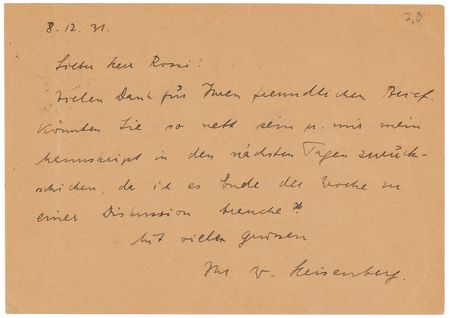 7,8
8. 12. 31.
Lieber Herr Rossi!
Vielen Dank für Ihren freundlichen Brief.
Könnten Sie so nett sein u. mir mein
Manuskript in den nächsten Tagen zurück-
schicken, da ich es Ende der Woche zu
einer Diskussion brauche?
Mit vielen Grüssen
Ihr W. Heisenberg.